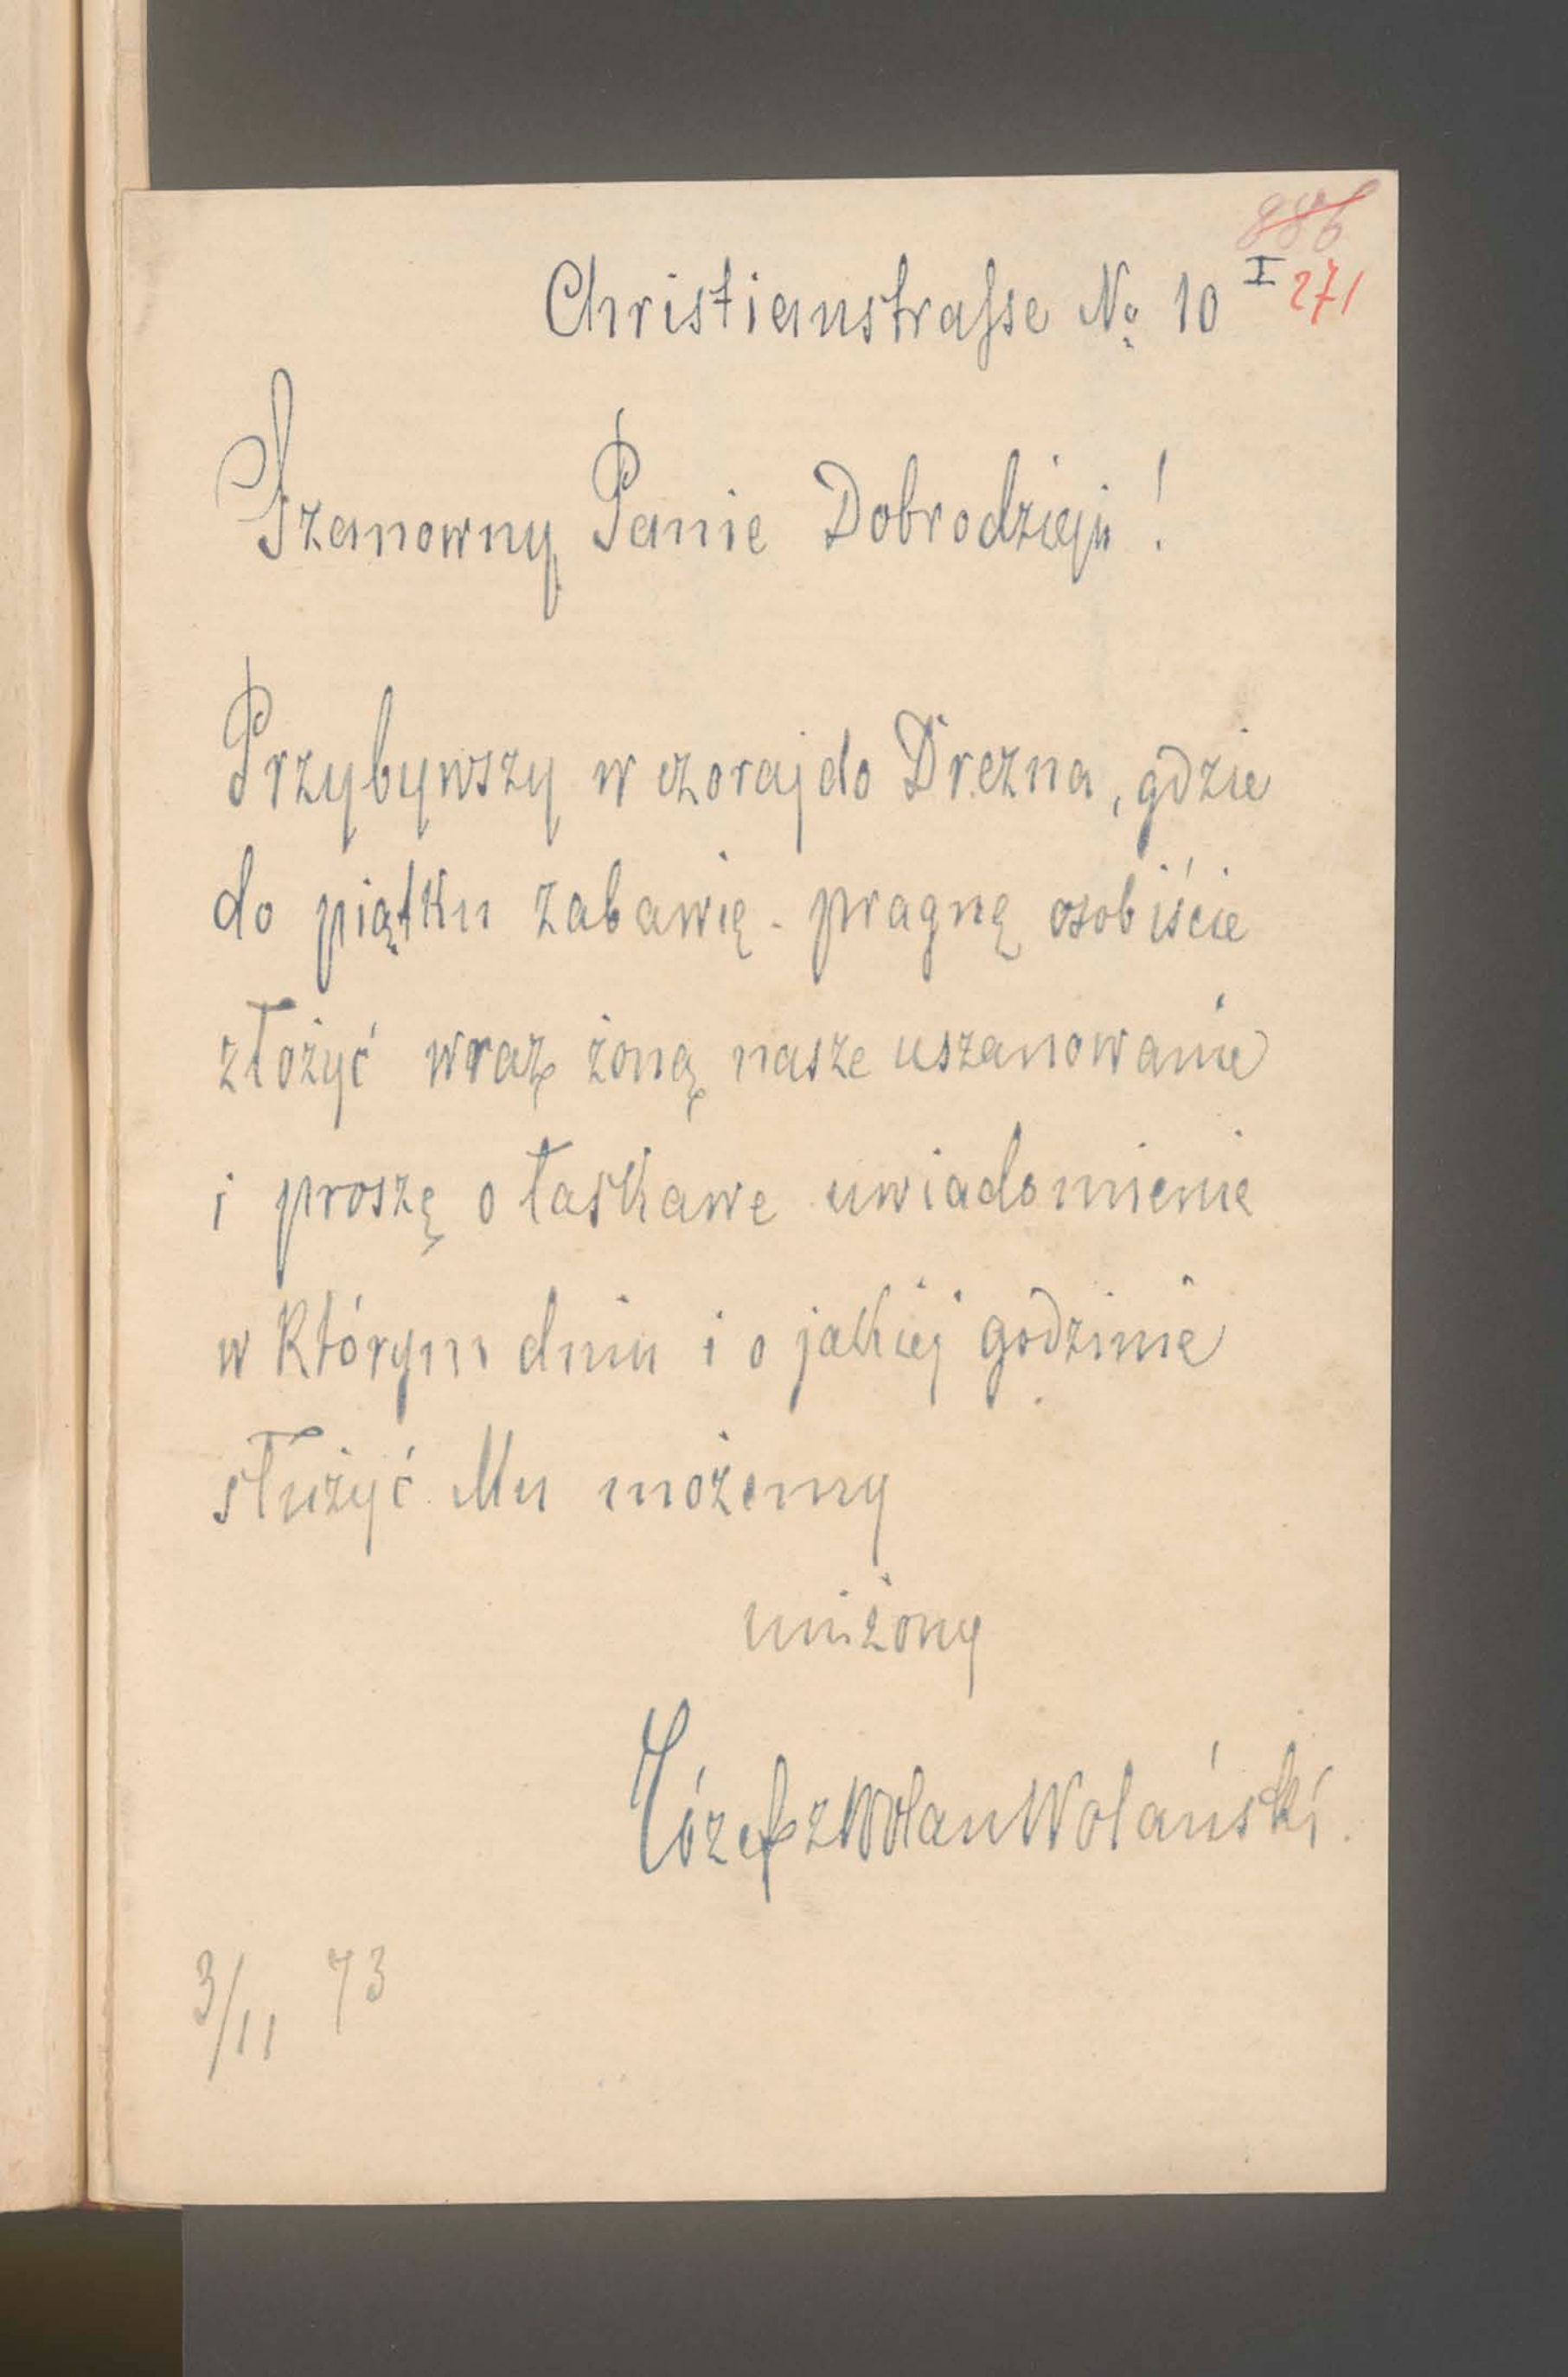 886
Christianstrasse No 10 I 271
Szanowny Panie Dobrodzieju!
Przybywszy wczoraj do Drezna, gdzie
do piątku zabawię - pragnę osobiście
złożyć wraz żoną nasze uszanowanie
i proszę o łaskawe uwiadomienie
w którym dniu i o jakiej godzinie
służyć Mu możemy
uniżony
Józef z Wolan Wolański.
3/11 73